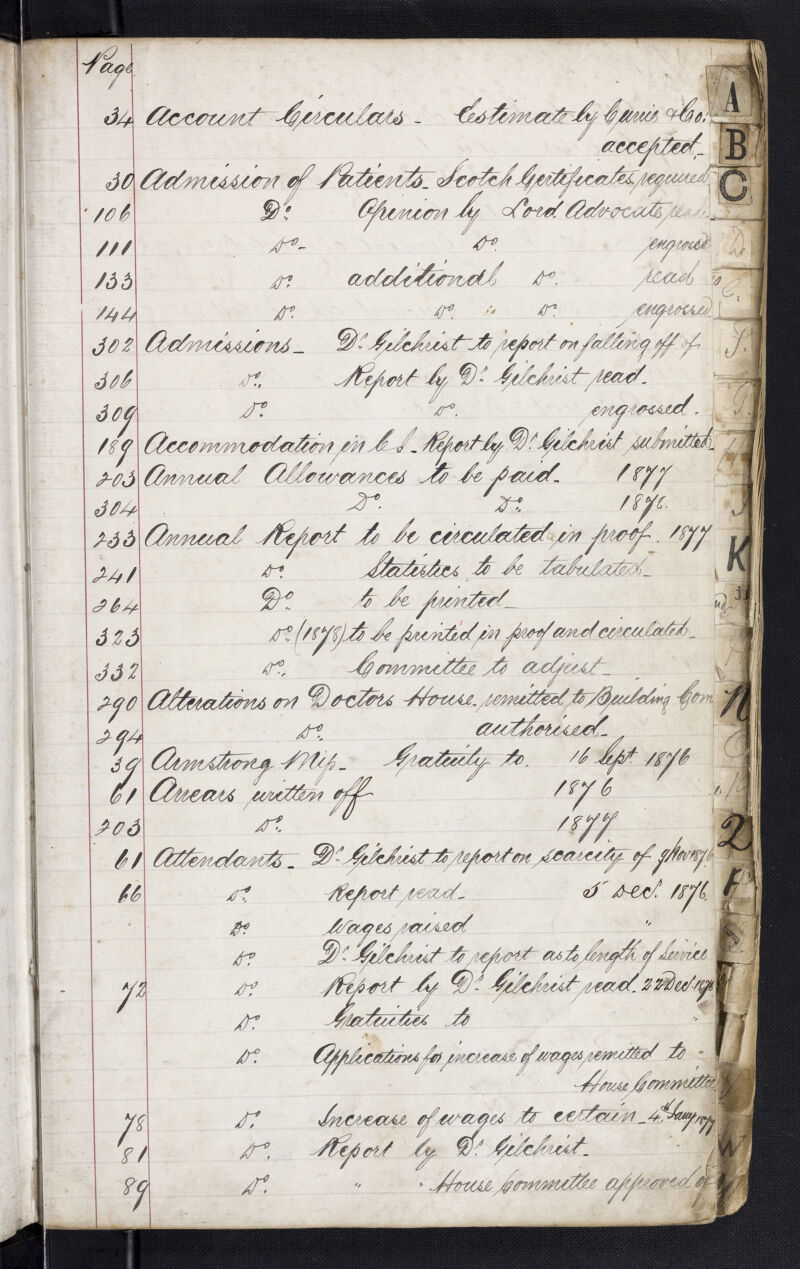 Page
34 Account Circulars - Estimate by Currie & Co:
accepted -
30 Admission of Patients - Scotch Certificates required
106 Do. Opinion by Lord Advocate read
111 Do - Do engrossed
133 Do. additional Do. read
144 Do. Do. Do. engrossed
302 Admissions - Dr. Gilchrist to report on falling off of
306 Do., Report by Dr. Gilchrist read.
309 Do. Do. engrossed.
189 Accommodation in C I - Report by Dr. Gilchrist submitted -
203 Annual Allowances to be paid - 1877
304 Do. Do. 1878.
233 Annual Report to be circulated in proof. 1877
241 Do. Statistics to be tabulated -
264 Do. to be printed -
323 Do. (1878) to be printed in proof and circulated -
332 Do., Committee to adjust -
290 Alterations on Doctors House - remitted to Building Com
294 Do., authorised -
39 Armstrong Miss - Gratuity to. 16 Sept. 1876
61 Arrears written off 1876
203 Do., 1877
61 Attendants - Dr. Gilchrist to report on scarcity of 9 Nov 1876
66 Do. Report read - 5 Dec. 1876
Do Wages raised "
Do. Dr. Gilchrist to report as to length of Service
72 Do. Report by Dr. Gilchrist read. 22 Dec. 1876
Do. Gratuities to "
Do. Applications for increase of wages remitted to "
House Committee
78 Do. Increase of wages to certain - 4th Jany 1877
81 Do. Report by Dr. Gilchrist -
89 Do. " " House Committee approved of
A
B
C
D.
E.
F.
G.
I
K
N
O
P
Q
R
W